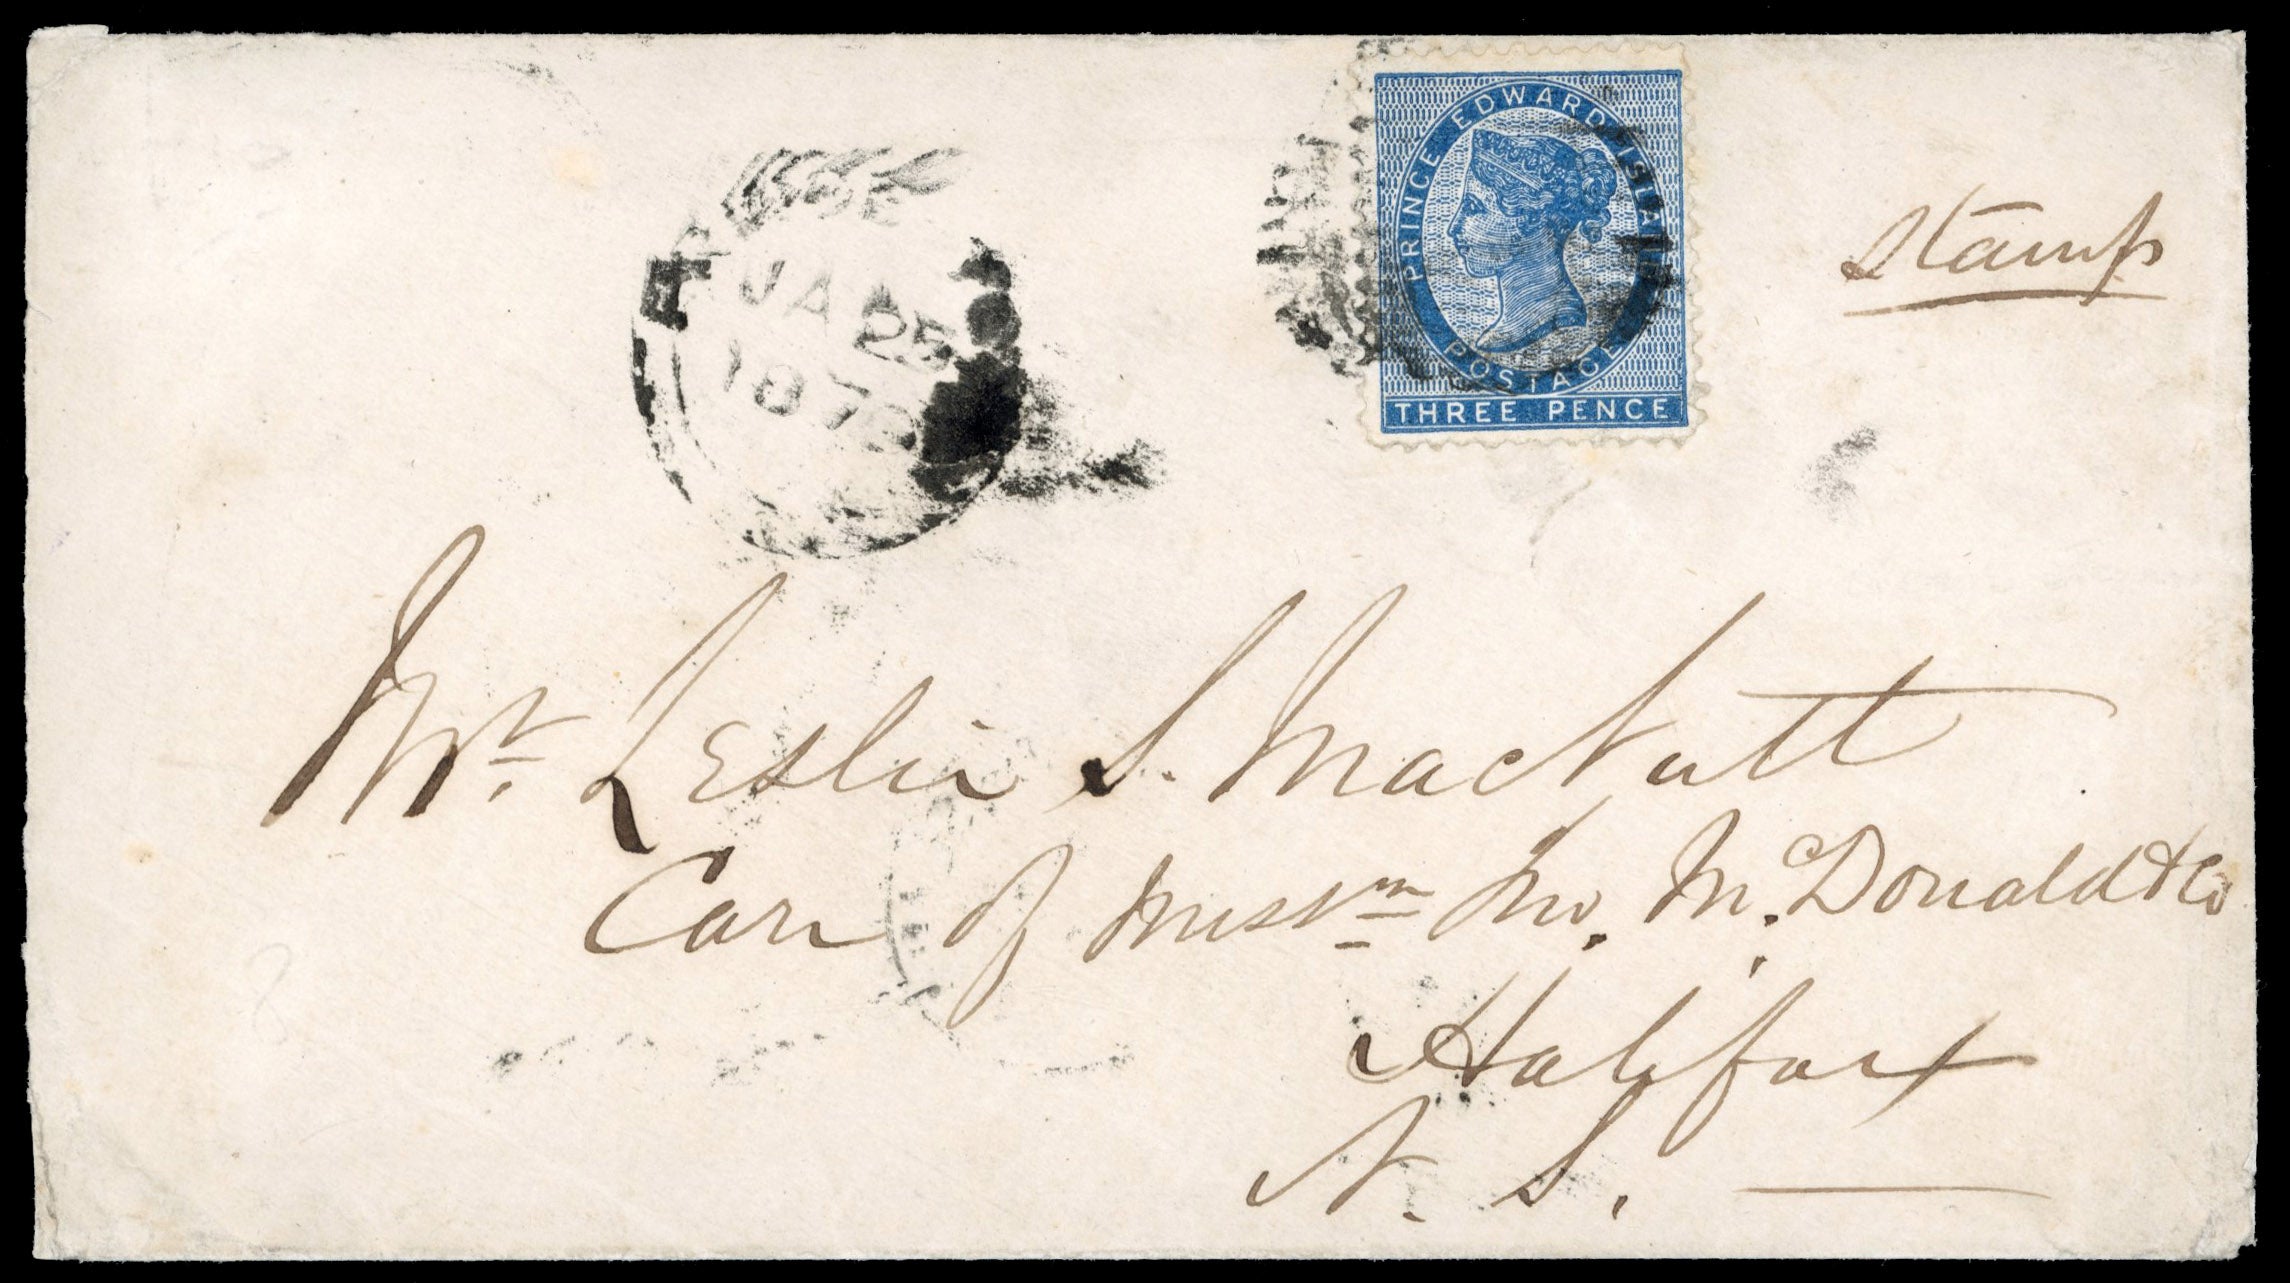 PRINCE EDWARD ISLAND
POSTAGE
THREE PENCE
stamp
JA 25
187
Mr. Leslie S. MacNutt
Care of Messrs Jno. McDonald & Co
Halifax
N. S.